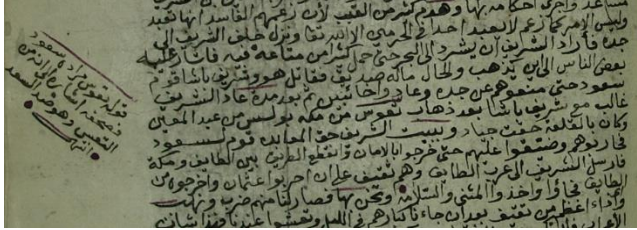 مساعد واجرى احكامه بها وهدم كثير من القبب لأن زعمهم الفاسد انها تعبد
وليس الامر كما زعم لا يعبد احد في الحرمين الا الله تقا ونزل خلف الشريف الى
جدة فأراد الشريف ان يشرد الى البحر حتى حمل كثيرا من متاعه فيه فاشار عليه
بعض الناس الى اين تذهب والحال ماله صديق فقاتل هو وشريف باشا قوم
سعود حتى منعوهم عن جدة وعادوا خائبين ثم بعد مدة عاد الشريف
غالب مع شريف باشا بعد ذهاب تعوس من مكة بو ليس من عبد المعين
وكان بالقلعة جياد وبيت الشريف المعابده قوم لسعود
فحاربوهم وضيقوا عليهم حتى خرجوا بالامان وانقطع الطريق بين الطايف ومكة
فارسل الشريف الى عرب الطايف وهم ثقيف على ان احربوا عثمان واخرجوه من
الطايف فجاؤا واخذوا المثنى والسلامه ونحن بها فصار لنا منهم ضرب ونهب
واذاء عظيم من ثقيف بعد ان جاءنا كبارهم في الليل وتعشوا عندنا
قوله تعوس مراده سعود
فصحفه الناس
التعس وهو ضد السعد
انتهى